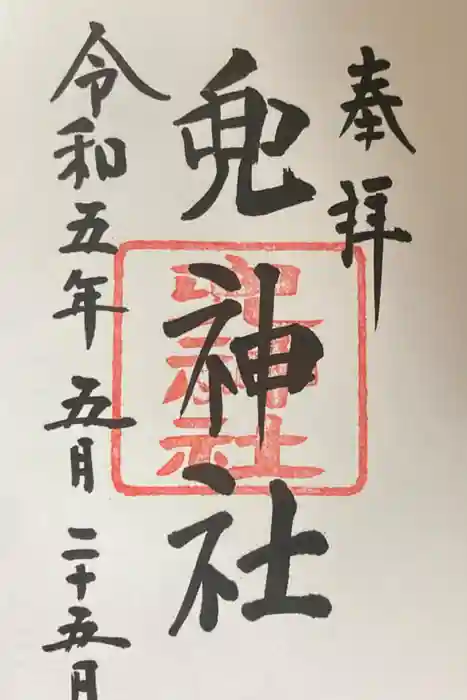 奉拝
兜神社
令和五年五月二十五日